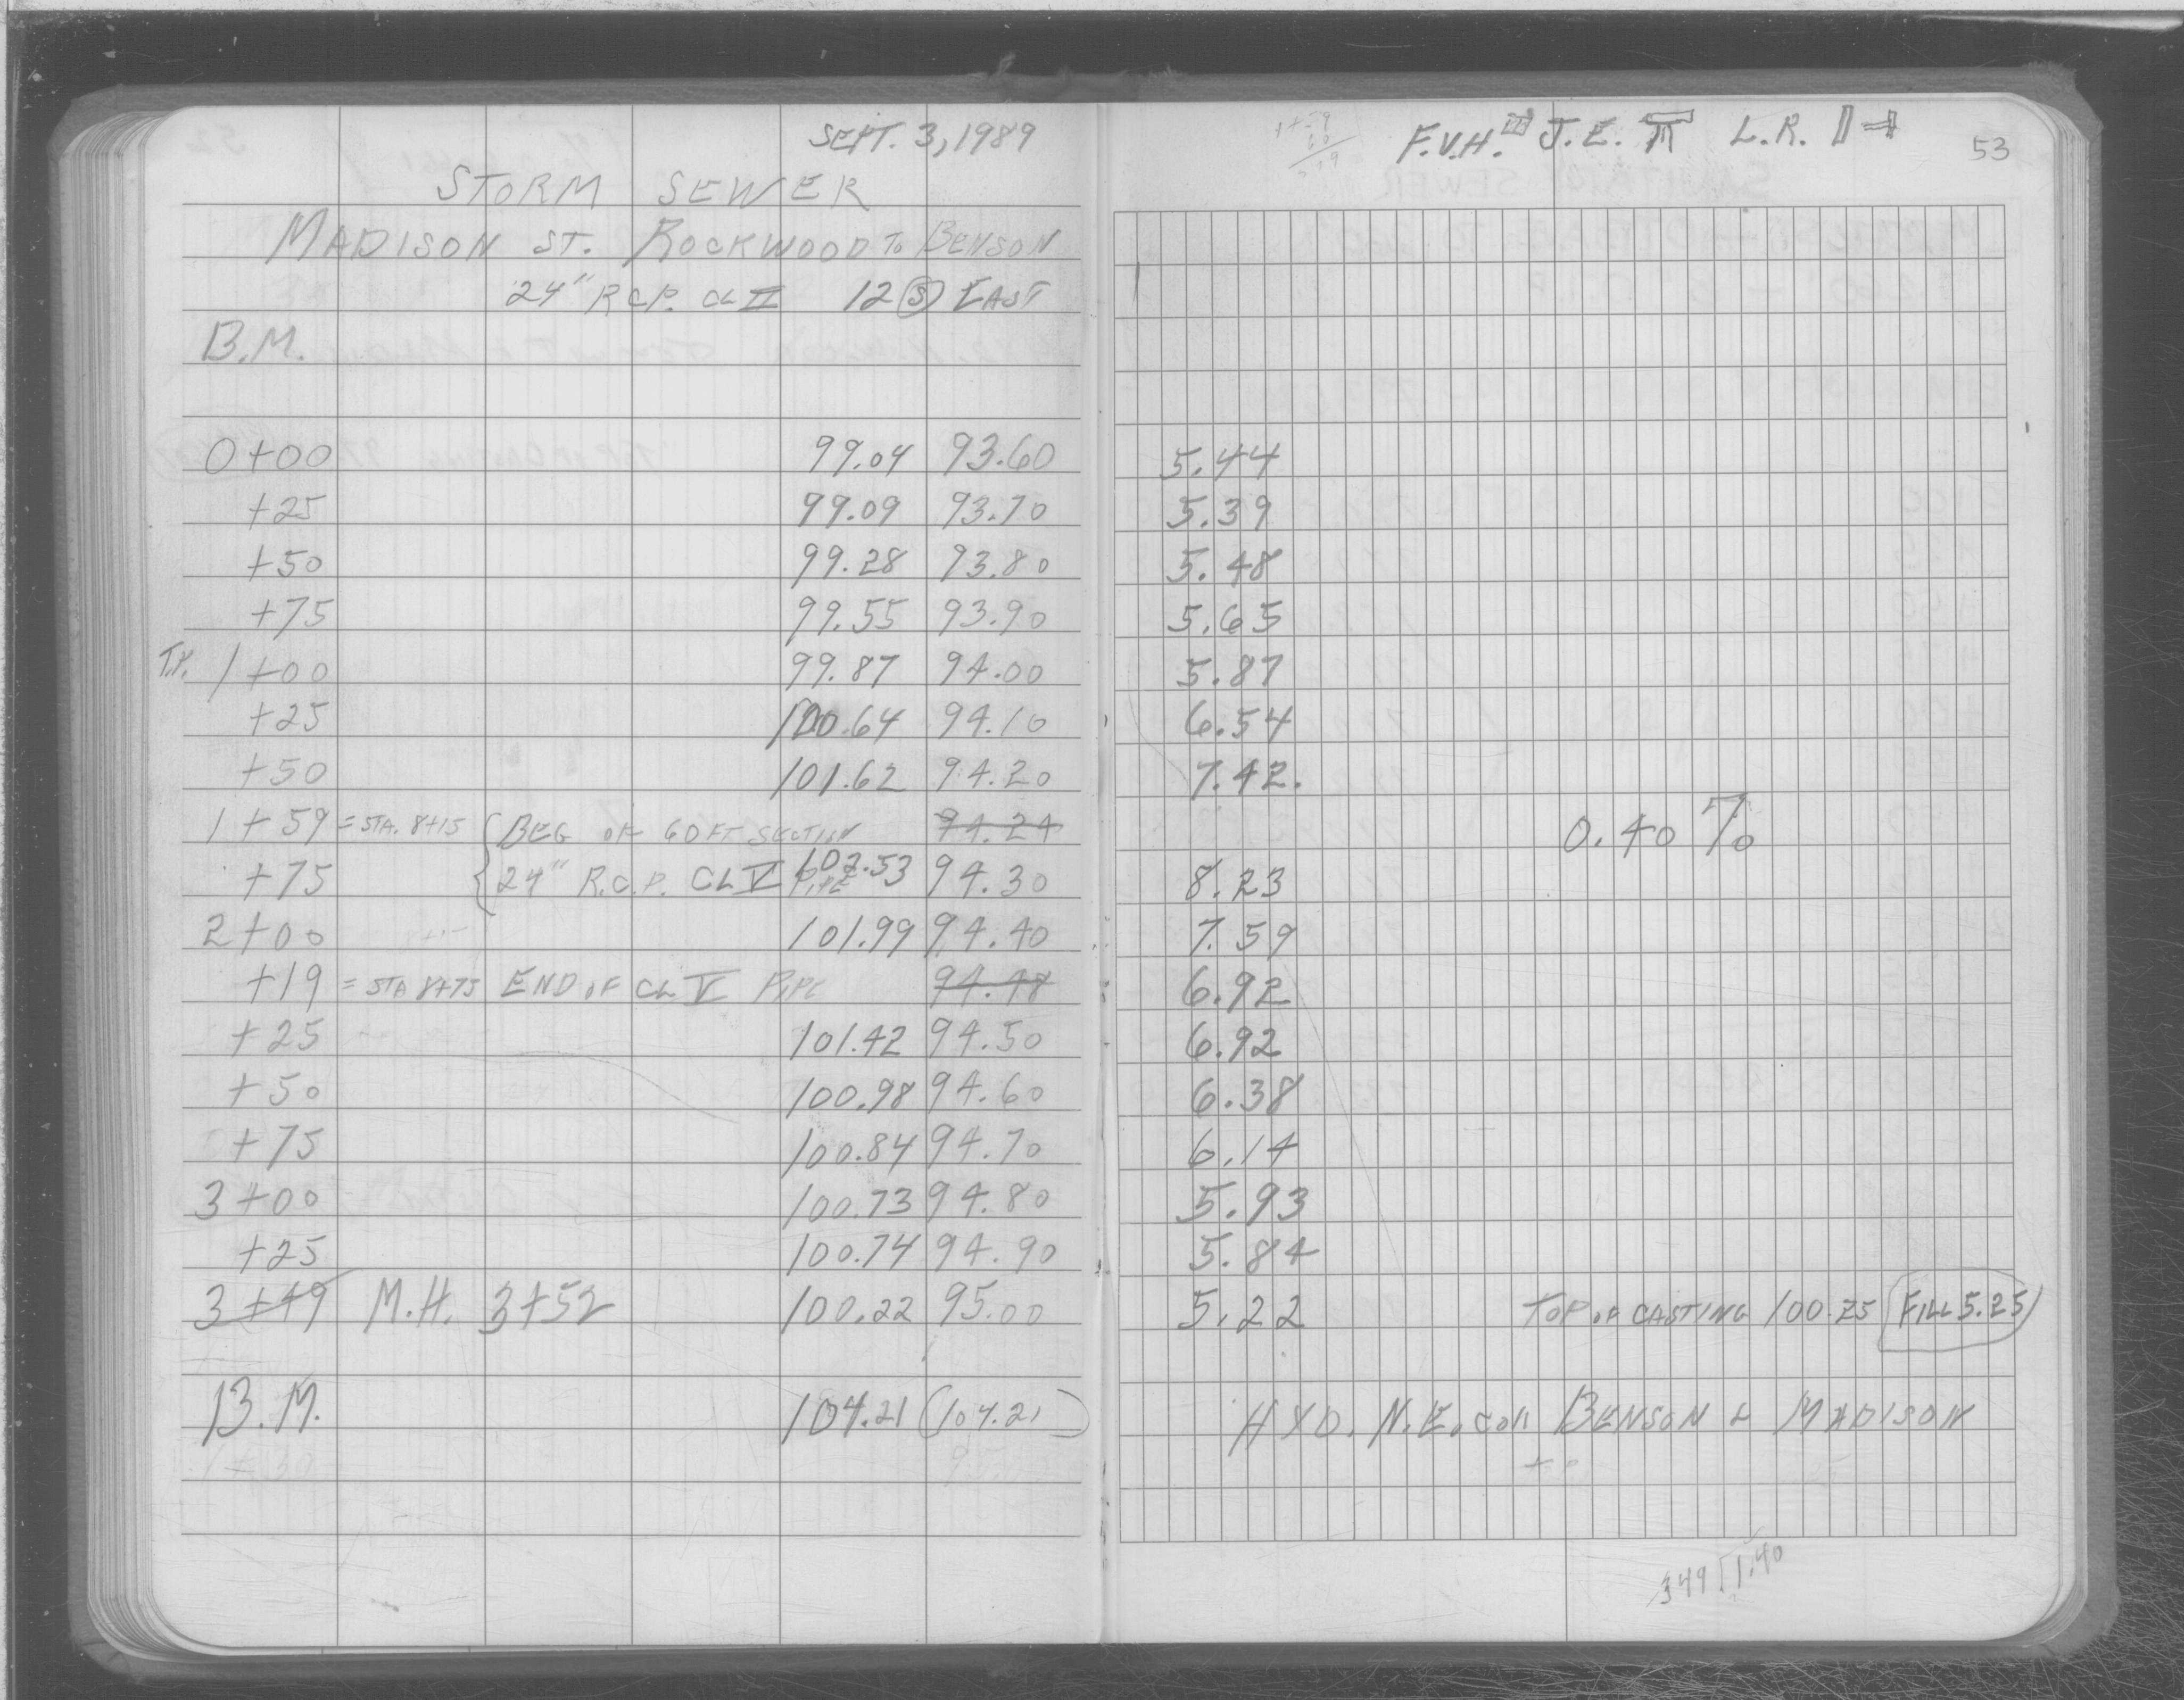 SEPT. 3, 1989
STORM SEWER
MADISON ST. ROCKWOOD TO BENSON
24" R.C.P. CL II 12 (S) EAST
B.M.
0+00 99.04 93.60
+25 99.09 93.70
+50 99.28 93.80
+75 99.55 93.90
T.P. 1+00 99.87 94.00
+25 100.64 94.10
+50 101.62 94.20
1+59 = STA. 8+15 { BEG OF 60 FT SECTION 94.24
+75 24" R.C.P. CL V PIPE 102.53 94.30
2+00 101.99 94.40
+19 = STA 8+75 END OF CL V PIPE 94.48
+25 101.42 94.50
+50 100.98 94.60
+75 100.84 94.70
3+00 100.73 94.80
+25 100.74 94.90
3+49 M.H. 3+52 100.22 95.00
B.M. 104.21 (104.21)
F.V.H. J.E. L.R. 53
5.44
5.39
5.48
5.65
5.87
6.54
7.42.
0.40 %
8.23
7.59
6.92
6.92
6.38
6.14
5.93
5.84
5.22 TOP OF CASTING 100.25 FILL 5.25
HYD. N.E. COR BENSON & MADISON
349 1.40